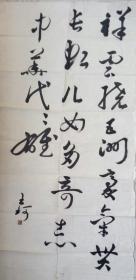 祥云绕五洲豪气贯
长虹儿女多奇志
中华代々雄